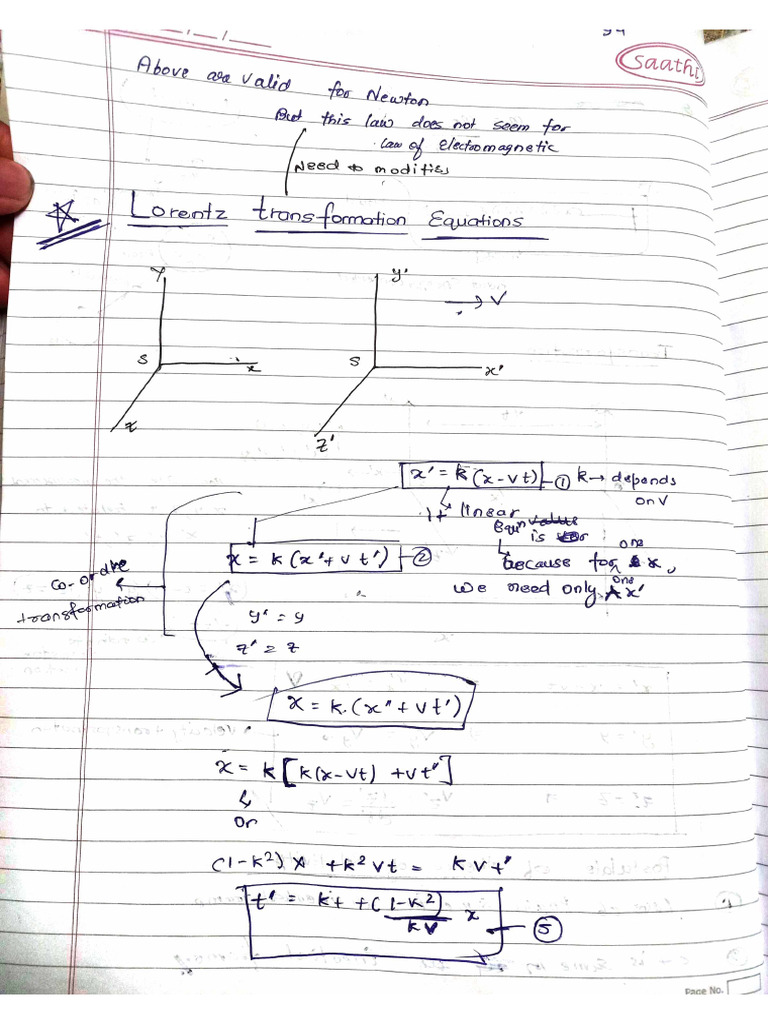 saathi
Above are valid for Newton
But this law does not seem for
law of electromagnetic
Need to modifies
Lorentz transformation Equations
Y
y'
→ V
S
x
S
x'
z
z'
x' = k (x-vt) —①
k → depends
on v
It linear
Equn is
because for one x,
we need only one x'
x = k (x' + v t') —②
co-ordate
transformation
y' = y
z' = z
x = k.(x' + vt')
x = k[k(x-vt) + vt']
or
(1-k²)x + k²vt = kvt'
t' = kt + (1-k²)/kv x —⑤
Page No.